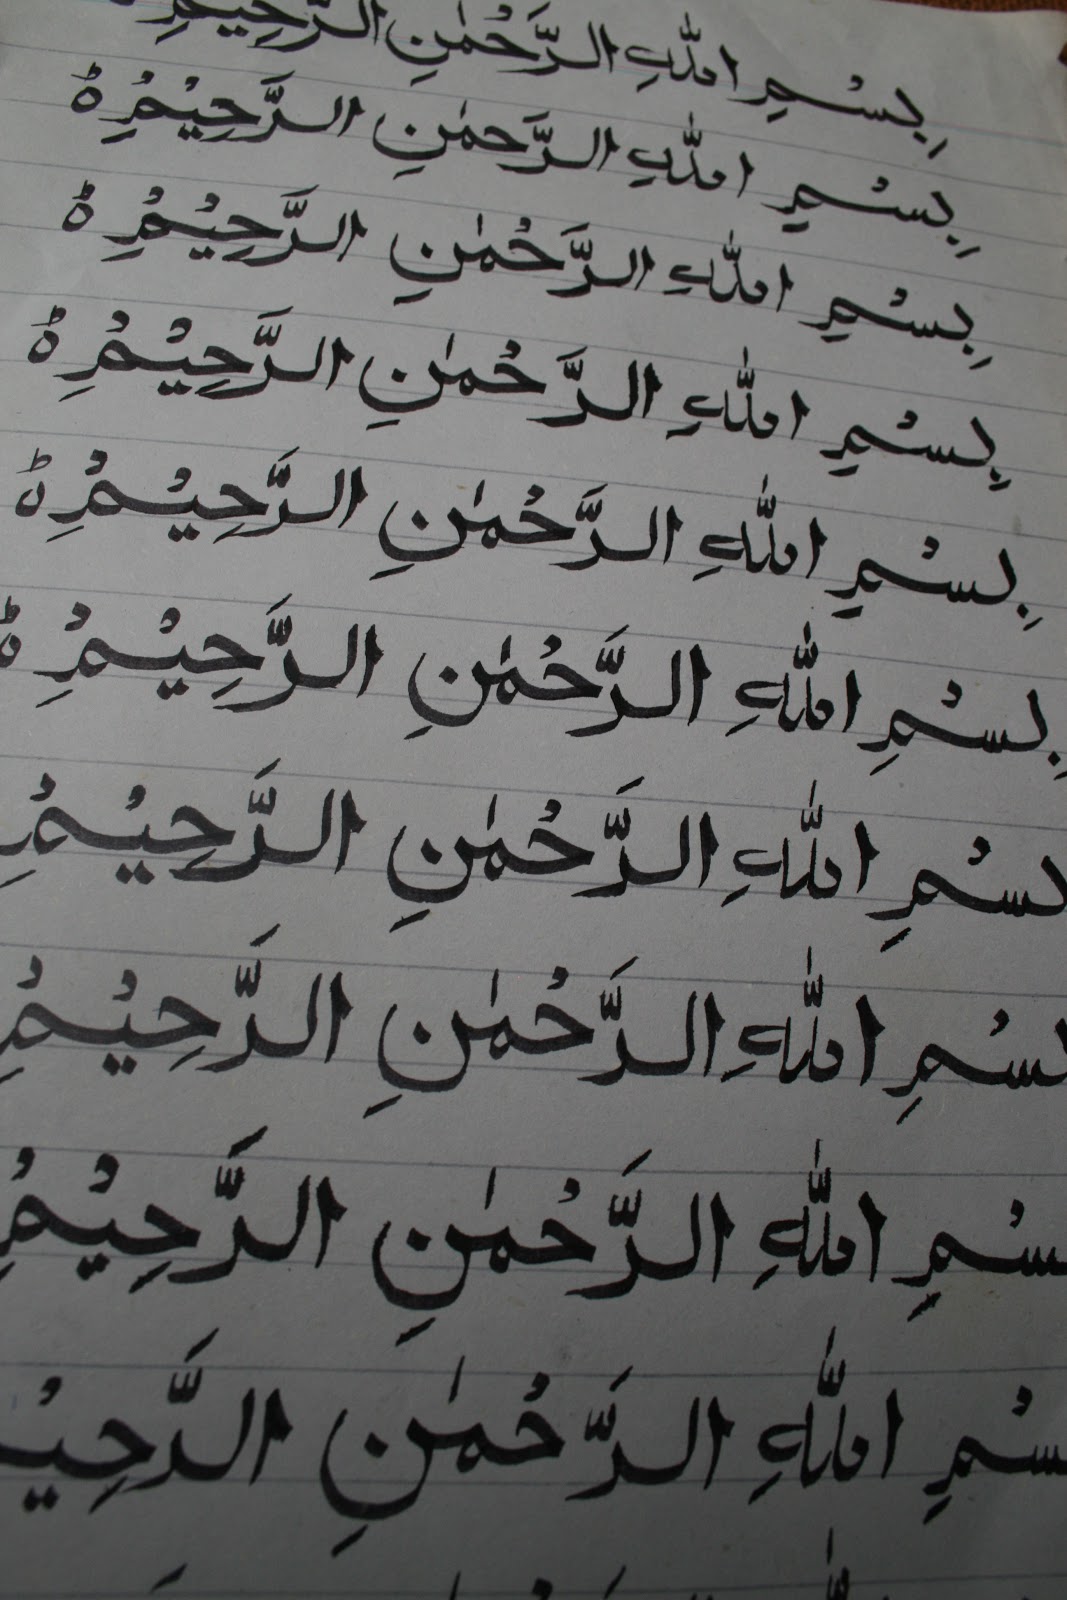 بِسْمِ اللّٰهِ الرَّحْمٰنِ الرَّحِيْمِ
بِسْمِ اللّٰهِ الرَّحْمٰنِ الرَّحِيْمِ ۃ
بِسْمِ اللّٰهِ الرَّحْمٰنِ الرَّحِيْمِ ۃ
بِسْمِ اللّٰهِ الرَّحْمٰنِ الرَّحِيْمِ ۃ
بِسْمِ اللّٰهِ الرَّحْمٰنِ الرَّحِيْمِ ۃ
بِسْمِ اللّٰهِ الرَّحْمٰنِ الرَّحِيْمِ ۃ
بِسْمِ اللّٰهِ الرَّحْمٰنِ الرَّحِيْمِ
بِسْمِ اللّٰهِ الرَّحْمٰنِ الرَّحِيْمِ
بِسْمِ اللّٰهِ الرَّحْمٰنِ الرَّحِيْمِ
سْمِ اللّٰهِ الرَّحْمٰنِ الرَّحِيْ